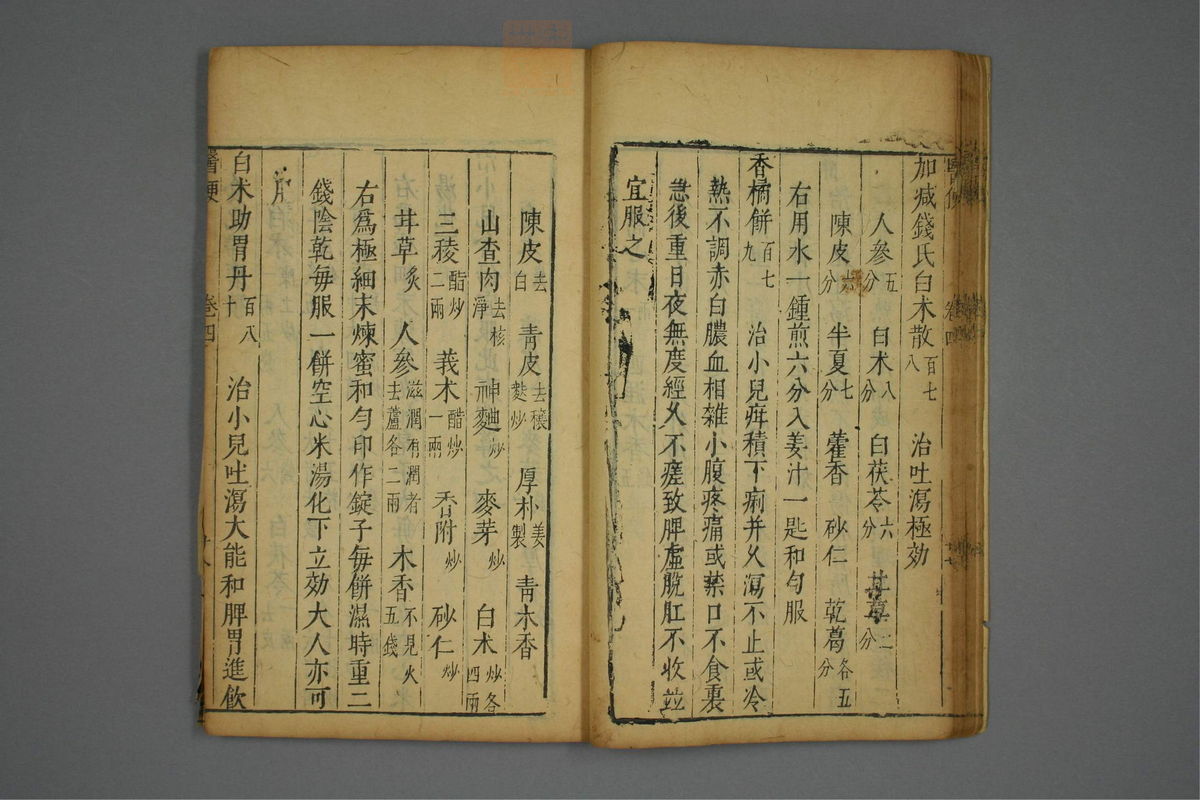 加減錢氏白术散百七八 治吐瀉極効
人參五分 白术八分 白茯苓六分 甘草二分
陳皮六分 半夏七分 藿香 砂仁 乾葛各五分
右用水一鍾煎六分入姜汁一匙和勻服
香橘餅百七九 治小兒疳積下痢并久瀉不止或冷
熱不調赤白膿血相雜小腹疼痛或禁口不食裏
急後重日夜無度經久不瘥致脾虛脫肛不收並
宜服之
陳皮去白 青皮去穰麩炒 厚朴姜製 青木香
山查肉去核淨 神麯炒 麥芽炒 白术炒各四兩
三稜醋炒二兩 莪术醋炒一兩 香附炒 砂仁炒
甘草炙 人參滋潤有潤者去蘆各二兩 木香不見火五錢
右爲極細末煉蜜和勻印作錠子每餅濕時重二
錢陰乾每服一餅空心米湯化下立効大人亦可
服
白术助胃丹百八十 治小兒吐瀉大能和脾胃進飲
醫便 卷四